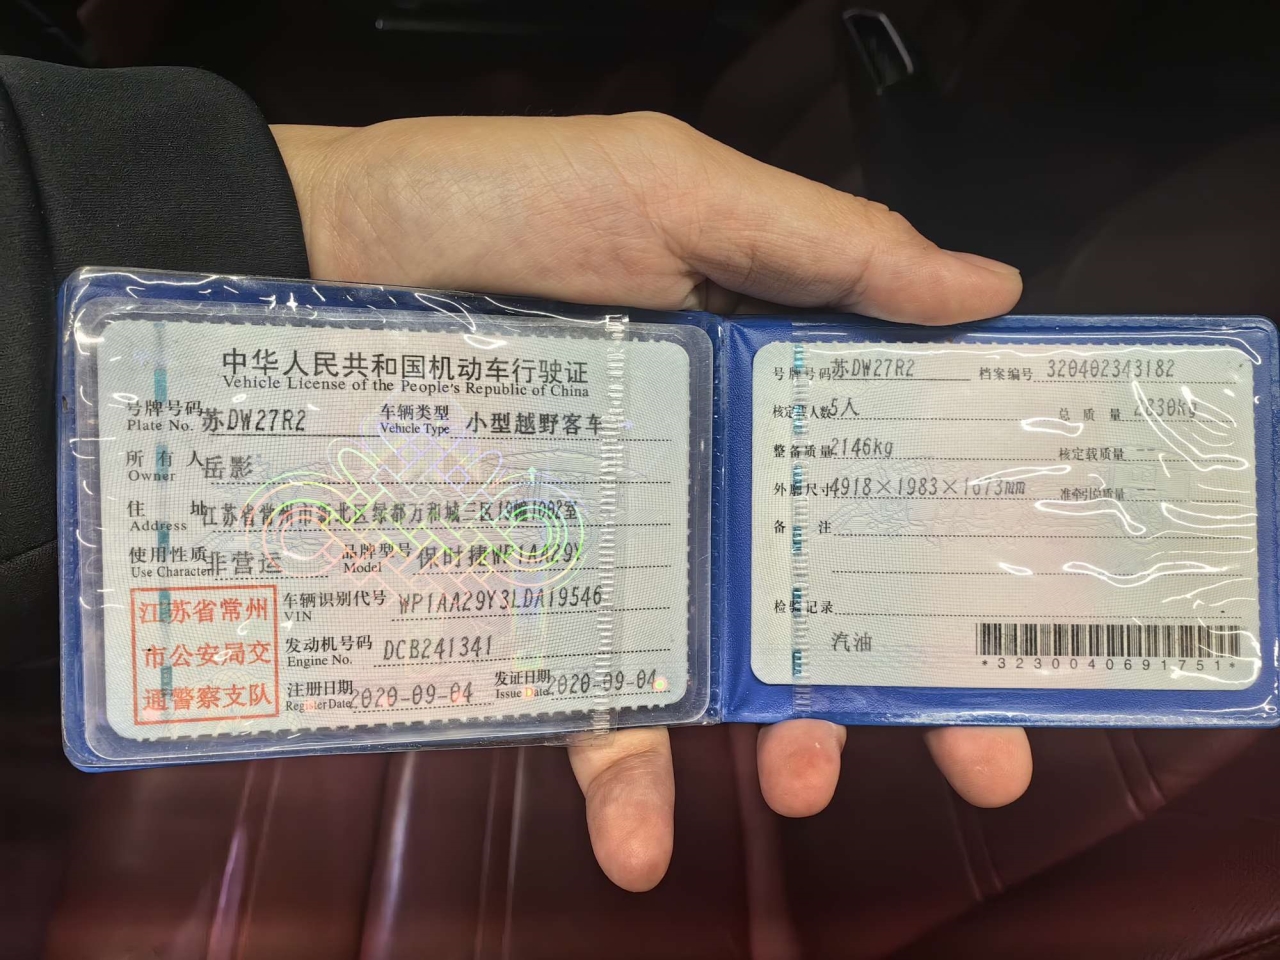 中华人民共和国机动车行驶证
Vehicle License of the People's Republic of China
号牌号码 苏DW27R2 车辆类型 小型越野客车
Plate No. Vehicle Type
所有人 岳影
Owner
住址 江苏省常州市 北区绿都万和城三区19幢1002室
Address
使用性质 非营运 品牌型号 保时捷WP1AA29Y
Use Character Model
江苏省常州
市公安局交
通警察支队
车辆识别代号 WP1AA29Y3LDA19546
VIN
发动机号码 DCB241341
Engine No.
注册日期 2020-09-04 发证日期 2020-09-04
Register Date Issue Date
号牌号码 苏DW27R2 档案编号 320402343182
核定载人数 5人 总质量 2830kg
整备质量 2146kg 核定载质量 --
外廓尺寸 4918×1983×1673mm 准牵引总质量 --
备注
检验记录
汽油
*3230040691751*